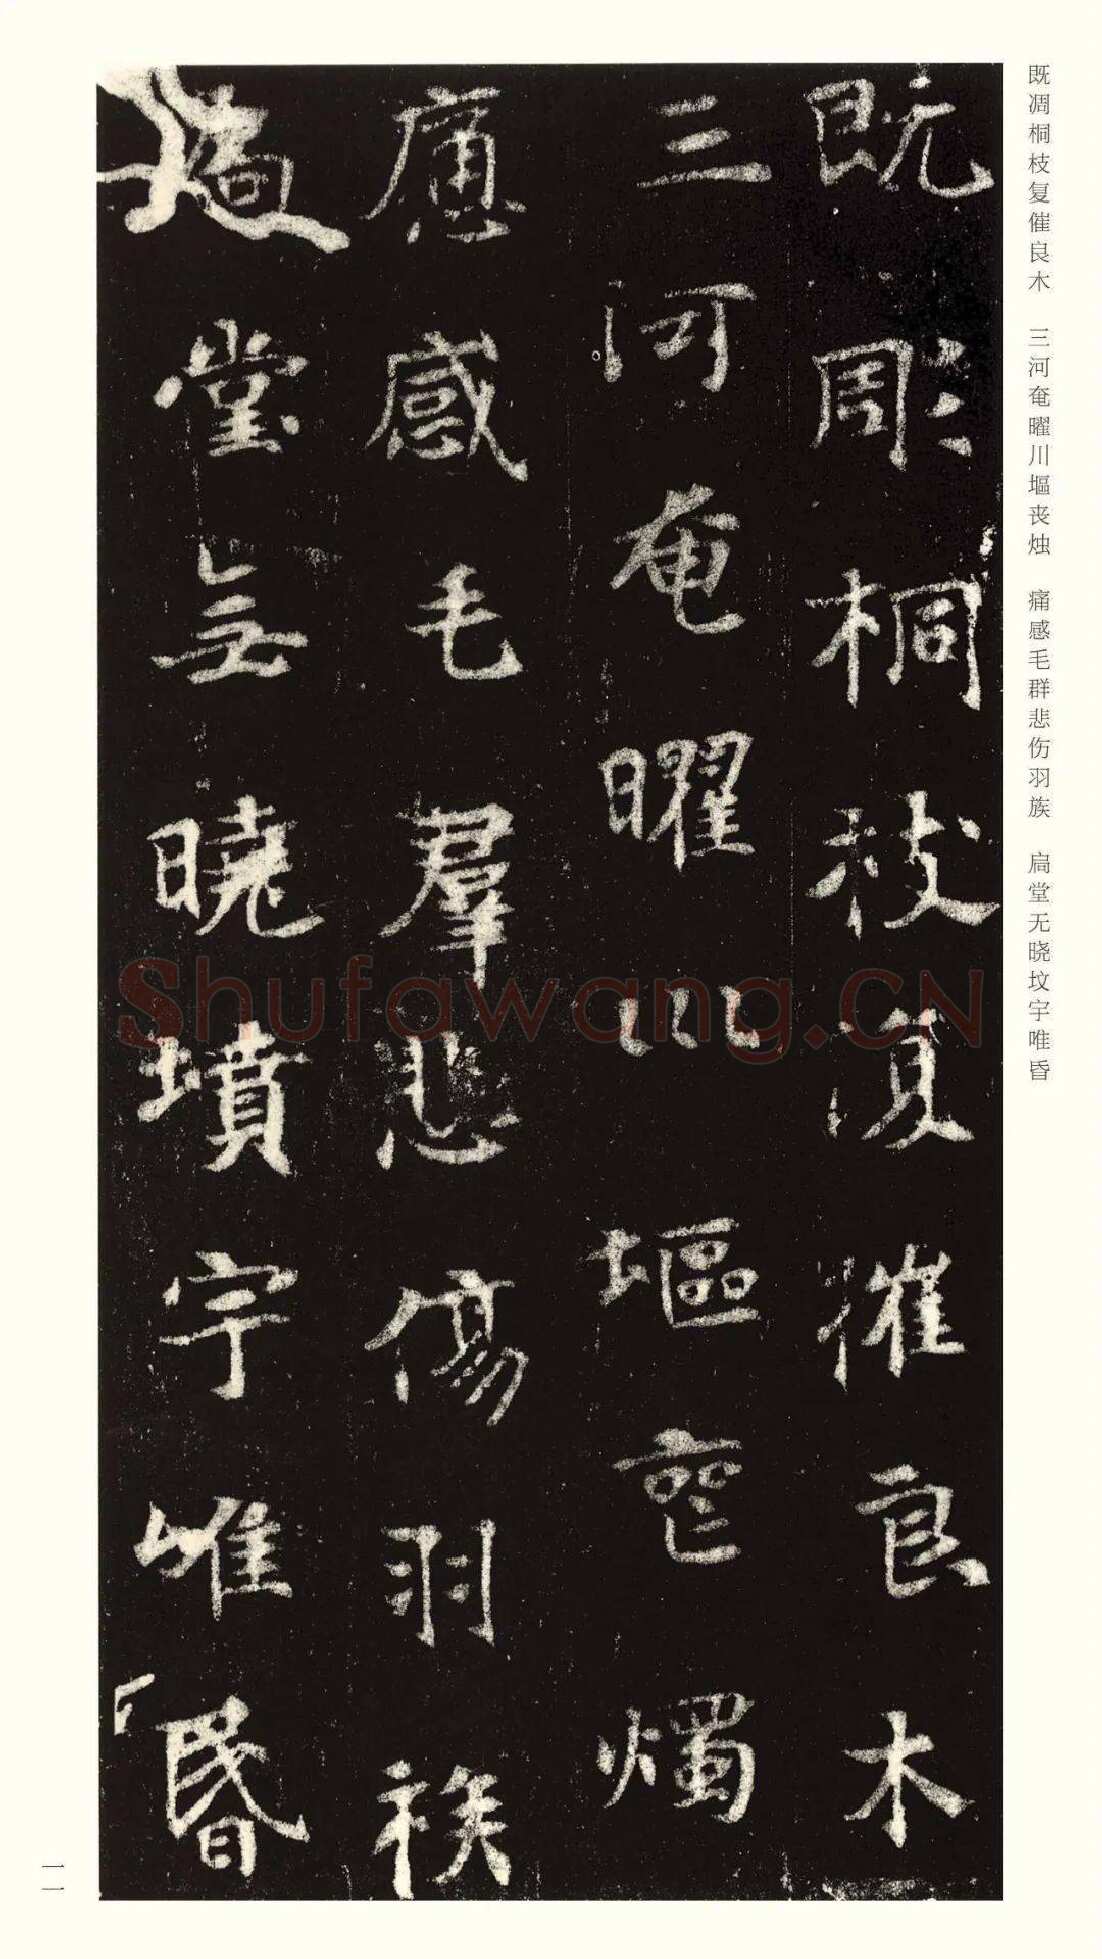 既凋桐枝复催良木 三河奄曜川塸丧烛 痛感毛群悲伤羽族 扃堂无晓坟宇唯昏
既彫桐枝復催良木
三河奄曜川塸喪燭
痛感毛羣悲傷羽族
扃堂無曉墳宇唯昬
Shufawang.CN
一一